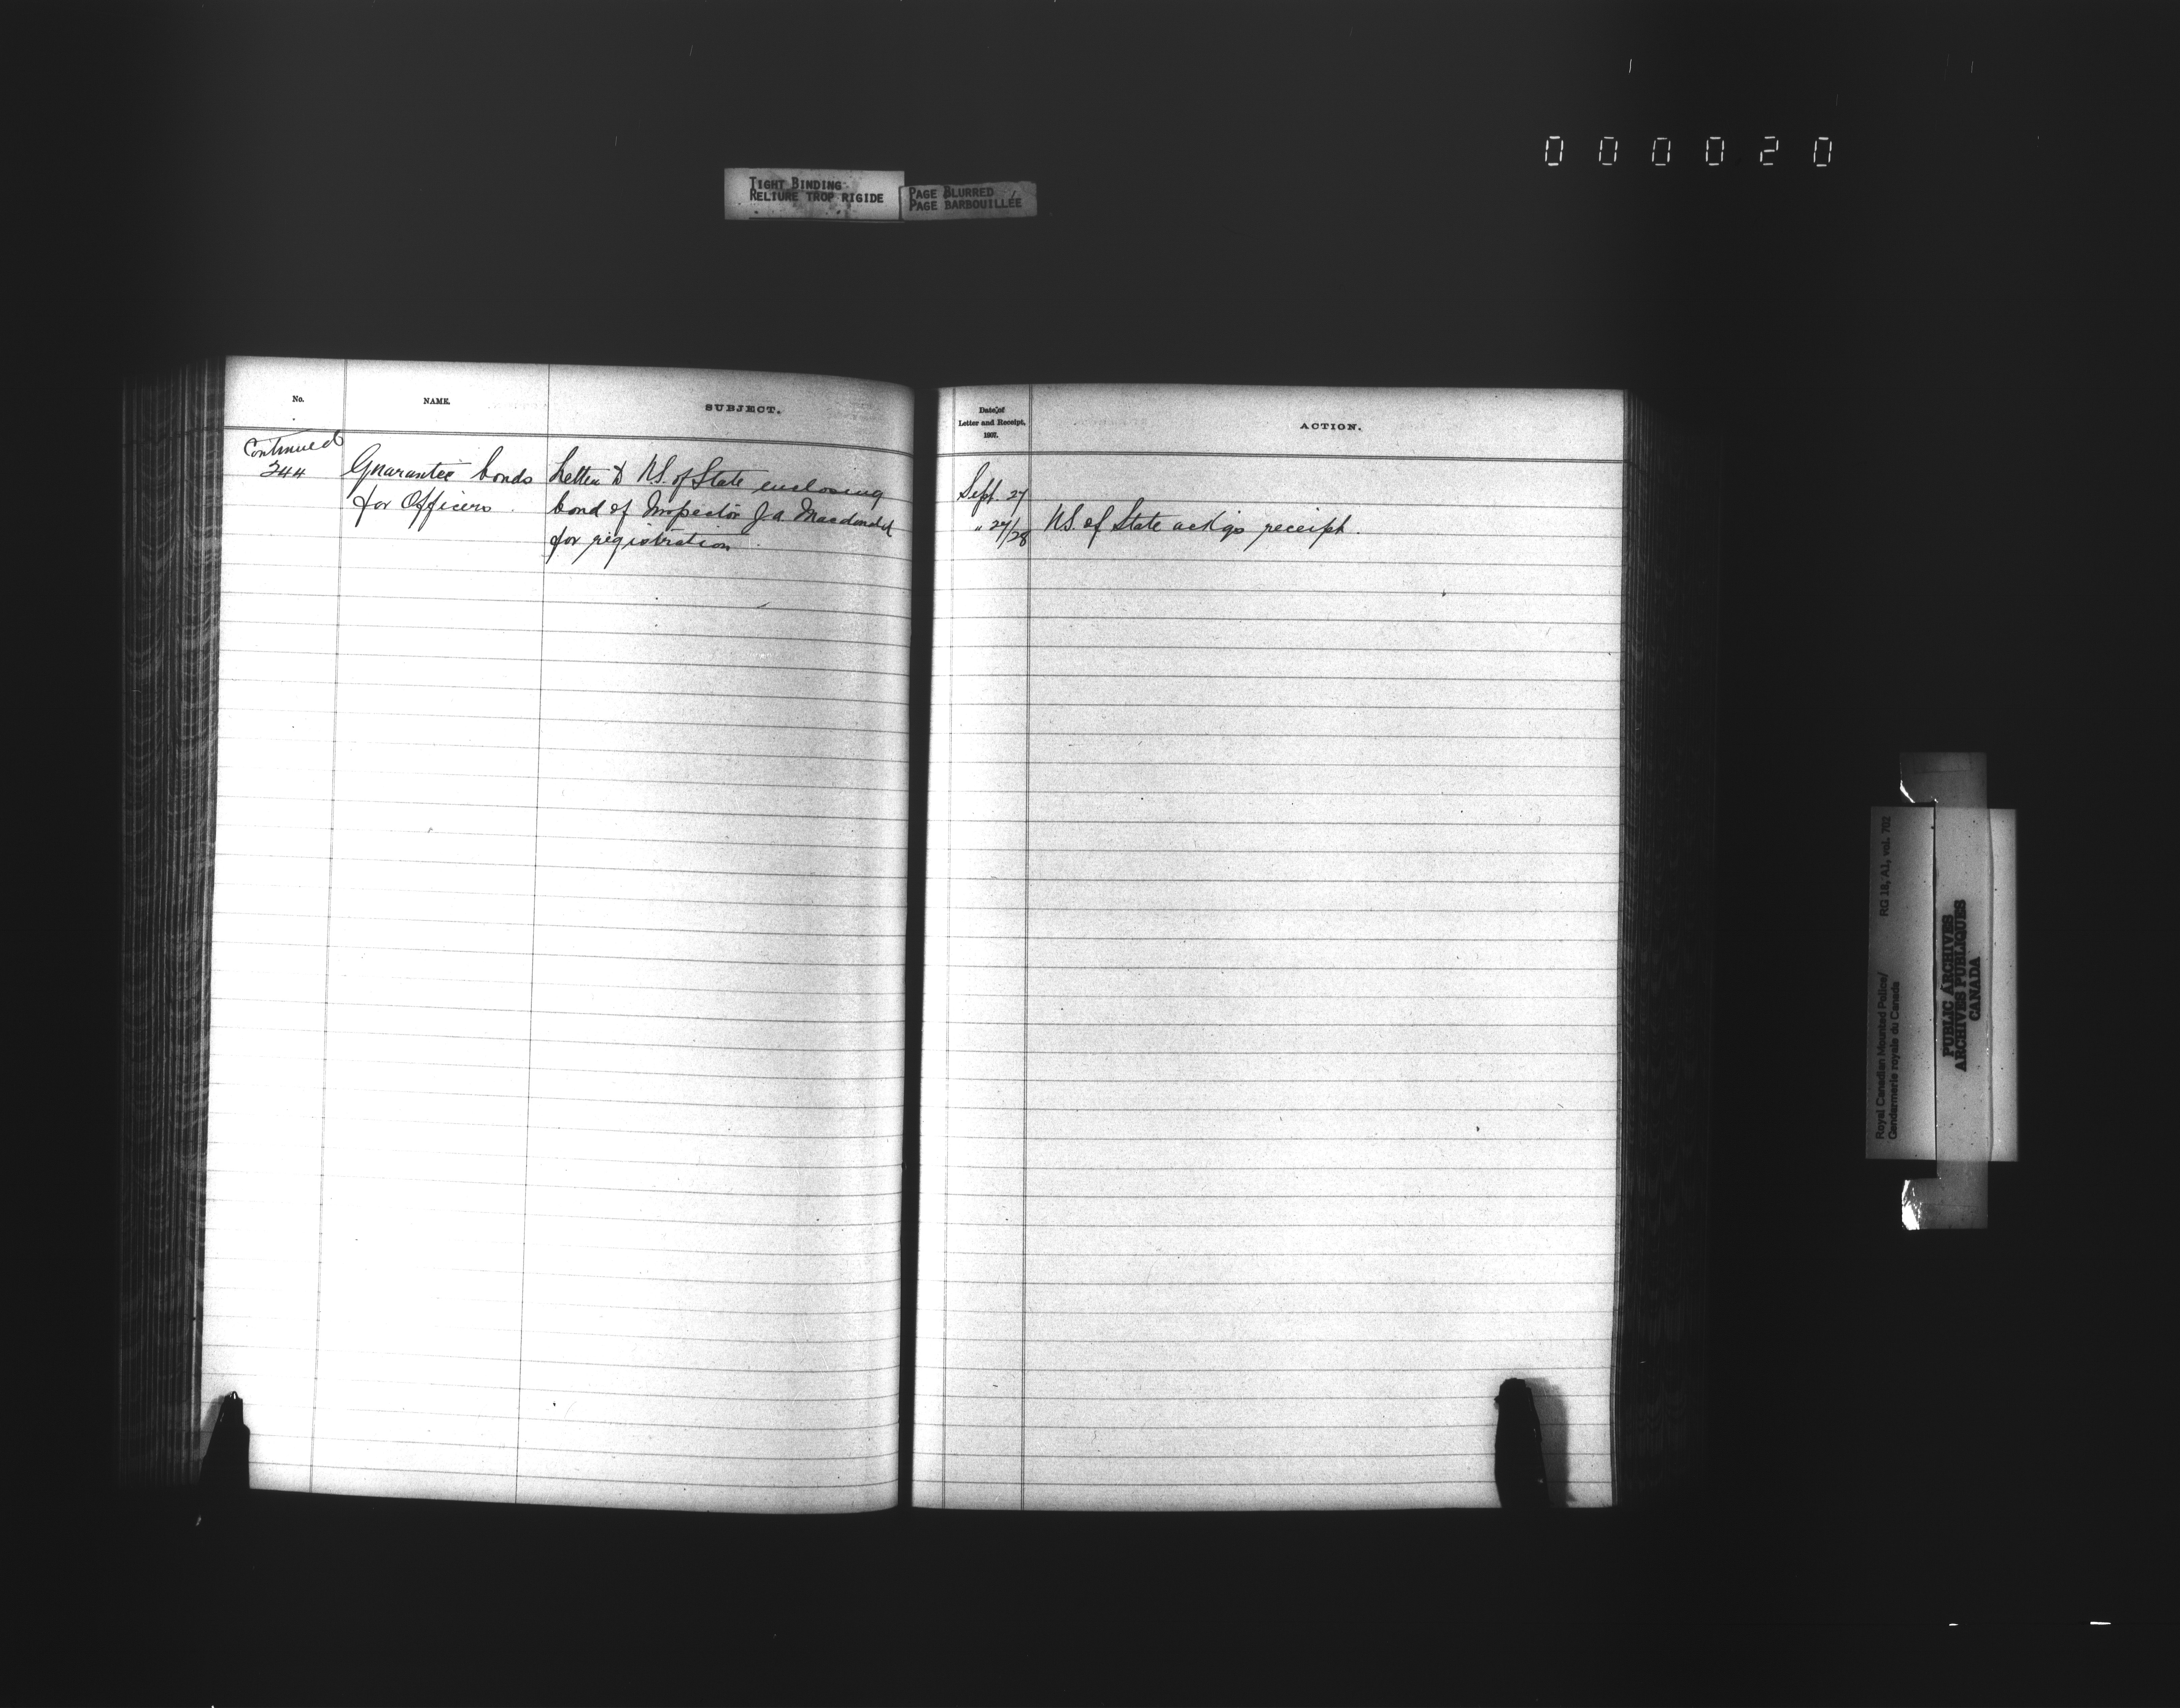 000020
TIGHT BINDING
RELIURE TROP RIGIDE
PAGE BLURRED
PAGE BARBOUILLÉE
No.
NAME.
SUBJECT.
Continued
344
Guarantee bonds
for Officers.
Letter to U.S. of State enclosing
bond of Inspector J A Macdonald
for registration.
Date of
Letter and Receipt,
1907.
ACTION.
Sept. 27
" 27/28
U.S. of State ack'gs receipt.
Royal Canadian Mounted Police/
Gendarmerie royale du Canada
RG 18, A1, vol. 702
PUBLIC ARCHIVES
ARCHIVES PUBLIQUES
CANADA